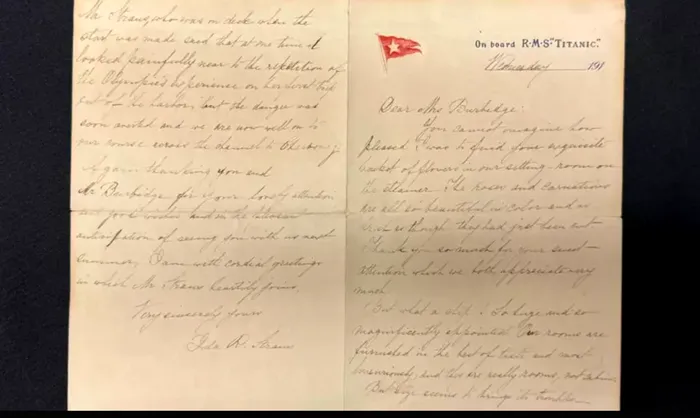 On board R·M·S "TITANIC."
Wednesday 191
Dear Mrs Burbidge:
You cannot imagine how
pleased I was to find your exquisite
basket of flowers in our sitting-room on
the steamer. The roses and carnations
are all so beautiful in color and as
fresh as though they had just been cut
Thank you so much for your sweet
attention which we both appreciate very
much.
But what a ship! So huge and so
magnificently appointed Our rooms are
furnished in the best of taste and most
luxuriously, and they are really rooms, not cabins.
But size seems to bring its troubles
Mr Straus, who was on deck when the
start was made said that at one time it
looked painfully near to the repetition of
the Olympic's experience on her first trip
out of the harbor, but the danger was
soon averted and we are now well on to
our course across the channel to Cherbourg
Again thanking you and
Mr Burbidge for your lovely attention
and good wishes and in the pleasant
anticipation of seeing you with us next
summer, I am with cordial greetings
in which Mr Straus heartily joins,
Very sincerely yours
Ida R. Straus